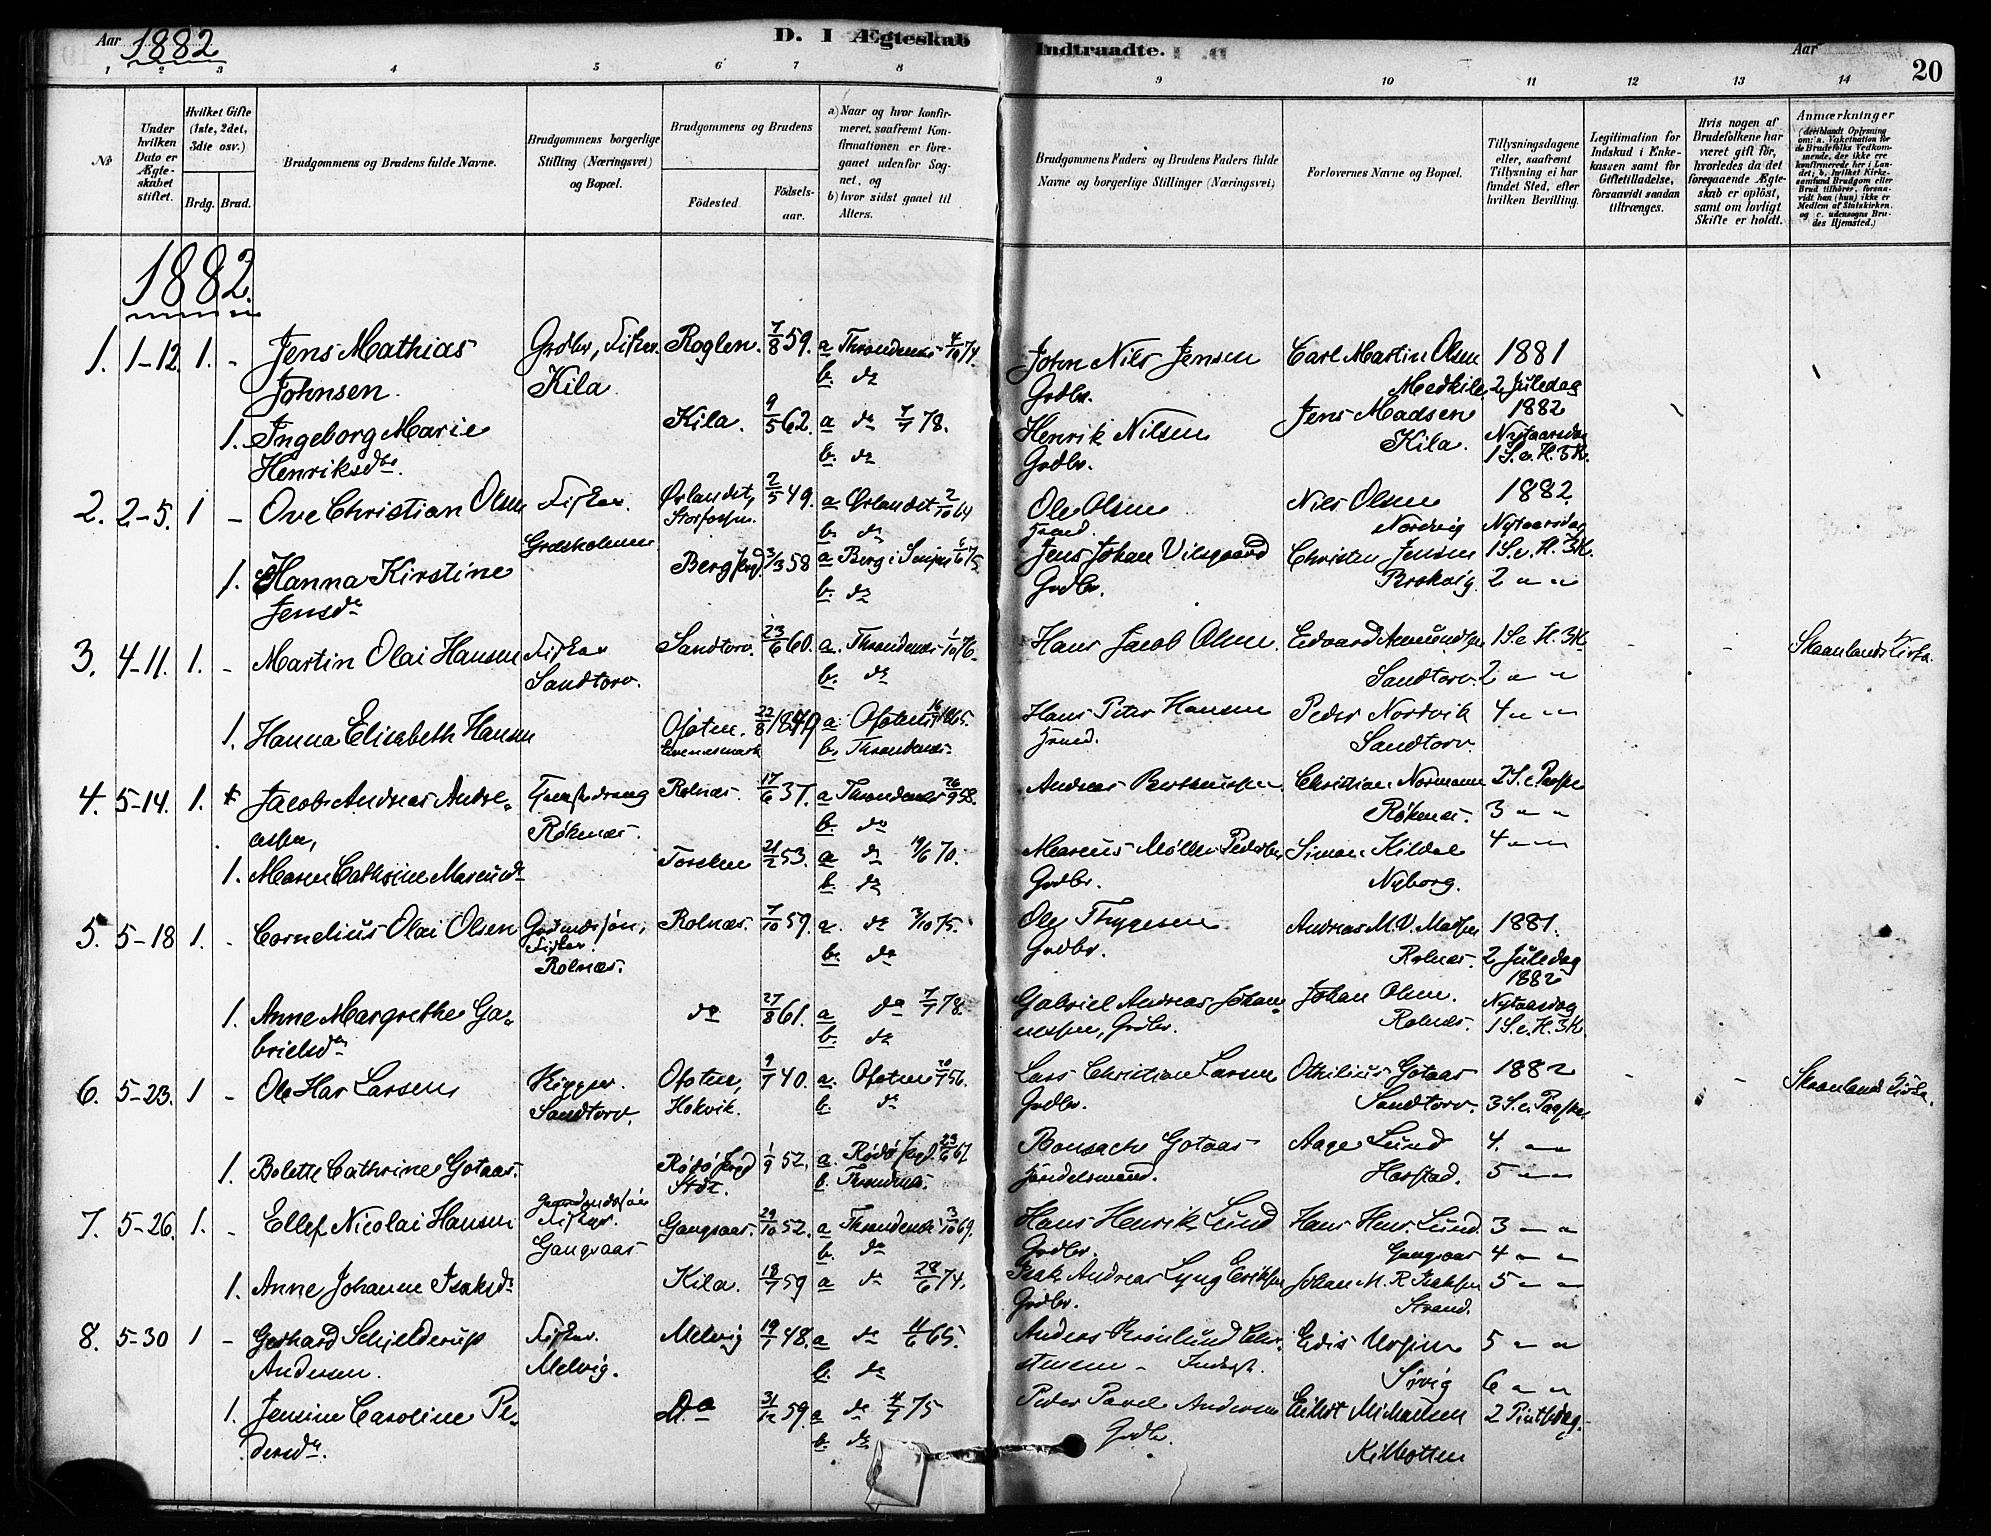 Aar 1882
D. I Ægteskab
Indtraadte.
Aar
20
1 2 3 4 5 6 7 8 9 10 11 12 13 14
No
Under hvilken Dato er Ægteskabet stiftet.
Hvilket Gifte (1ste, 2det, 3die osv.)
Brdg. Brud.
Brudgommens og Brudens fulde Navne.
Brudgommens borgerlige Stilling (Næringsvei) og Bopæl.
Brudgommens og Brudens
Fødested.
Fødselsaar.
a) Naar og hvor konfirmeret, saafremt Konfirmationen er foregaaet udenfor Sognet, og
b) hvor sidst gaaet til Alters.
Brudgommens Faders og Brudens Faders fulde Navne og borgerlige Stillinger (Næringsvei)
Forlovernes Navne og Bopæl.
Tillysningsdagene eller, saafremt Tillysning ei har fundet Sted, efter hvilken Bevilling.
Legitimation for Indskud i Enkekassen samt for Giftetilladelse, forsaavidt saadan tiltrænges.
Hvis nogen af Brudefolkene har været gift før, hvorledes da det foregaaende Ægteskab er opløst, samt om lovligt Skifte er holdt.
Anmærkninger
(deriblandt Oplysning om: a. Vakcination for de Brudefolks Vedkommende, der ikke ere konfirmerede her i Landet; b. hvilket Kirkesamfund Brudgom eller Brud tilhører, forsaavidt han (hun) ikke er Medlem af Statskirken, og c. udensogns Brudes Hjemsted.)
1882.
1. 1-12. 1. - Jens Mathias Grdbr, Fisker. Roglen. 7/8 59. a Throndenes 4/10 74. John Nils Jensen Carl Martin Olsen 1881
Johnsen. Kila b. do Grdbr. Medkila 2 Juledag
1. Ingeborg Marie Kila. 9/5 62. a do 7/7 78. Henrik Nilsen Jens Madsen 1882
Henriksdtr. b. do Grdbr. Kila. Nytaarsdag
1 S. e. H. 3 K.
2. 2-5. 1 - Ove Christian Olsen Fisker. Ørlandet, 2/5 49. a Ørlandet 2/10 64 Ole Olsen Nils Olsen 1882
b. do Nordvig Nytaarsdag
1. Hanna Kirstine Berg 3/3 58 a Berg i Senjen 75. Jens Johan Christen Jensen 1 S. e. H. 3 K.
Jensdr b. do Grdbr. 2 " "
3. 4-11. 1. - Martin Olai Hansen Fisker Sandtorv. 23/6 60. a. Throndenes 1/10 76. Hans Jacob Olsen. Edvard Amundsen 1 S. e. H. 3 K. - - Skaanlands Kirke.
Sandtorv. b. do Sandtorv. 2 " "
1. Hanna Elisabeth Hansen Ofoten. 22/8 1849 a. Ofoten 65. Hans Peter Hansen Peder Nordvik 4 " "
Evenesmark b. Throndenes. Sandtorv.
4. 5-14. 1. Jacob Andreas Andre- Tjenstedreng Rolnæs. 17/6 37. a Throndenes 26/9 58. Andreas Christian Normann 2 S. e. Paaske
assen, Røkenæs. b. do Røkenæs. 3 " "
1. Maren Cathrine Marcusdr Torsken 21/2 53. a do 19/6 70. Marcus Møller Pedersen Simon Kildal 4 " "
b. do Grdbr. Nyborg.
5. 5-18 1. - Cornelius Olai Olsen Gaardmdssøn, Rolnæs. 7/10 59. a. do 3/10 75. Ole Thygesen Andreas M. V. 1881.
Fisker. Rolnæs. b. do Grdbr. Rolnæs. 2 Juledag
1882
1. Anne Margrethe Ga- do 27/8 61. a do 7/7 78. Gabriel Andreas Johan- Johan Olsen. Nytaarsdag
brielsdr b. do nessen, Grdbr. Rolnæs. 1 S. e. H. 3 K
6. 5-23. 1 - Ole Har Larsen Skipper. Ofoten, 9/7 40. a. Ofoten 20/7 56. Lars Christian Larsen Othilius Gotaas 1882 - - Skaanland Kirke.
Sandtorv. Hokvik. b. do Grdbr. Sandtorv. 3 S. e. Paaske
1. Bolette Cathrine Gotaas. Rødø 1/9 52. a. Rødø 23/6 67. Gotaas Aage Lund 4. " "
b. Throndenes. Handelsmand. Harstad. 5 " "
7. 5-26. 1. - Ellef Nicolai Hansen Gaardmandssøn Gangsaas. 29/10 52. a Throndenes 3/10 69. Hans Henrik Lund Hans Henr. Lund 3 " "
Fisker. Gangsaas b. do Grdbr. Gangsaas 4 " "
1. Anne Johanne Isaksdr Kila. 18/7 59 a do 28/6 74. Isak Andreas Lyng Eriksen Johan M. R. Isaksen 5 " "
Grdbr. Strand.
8. 5-30 1 - Gerhard Schjelderup Fisker. Melvig 19/7 48. a do 11/6 65. Anders Rosenlund Chri- 5 " "
Andersen. Melvig. b. do stensen - Inderst. Sørvig 6 " "
1. Jensine Caroline Pe- Do 31/12 59. a do 4/7 75 Peder Pavel Andersen Mikalsen 2 Pintsedag.
dersdr. b. do Grdbr. Kilbotten